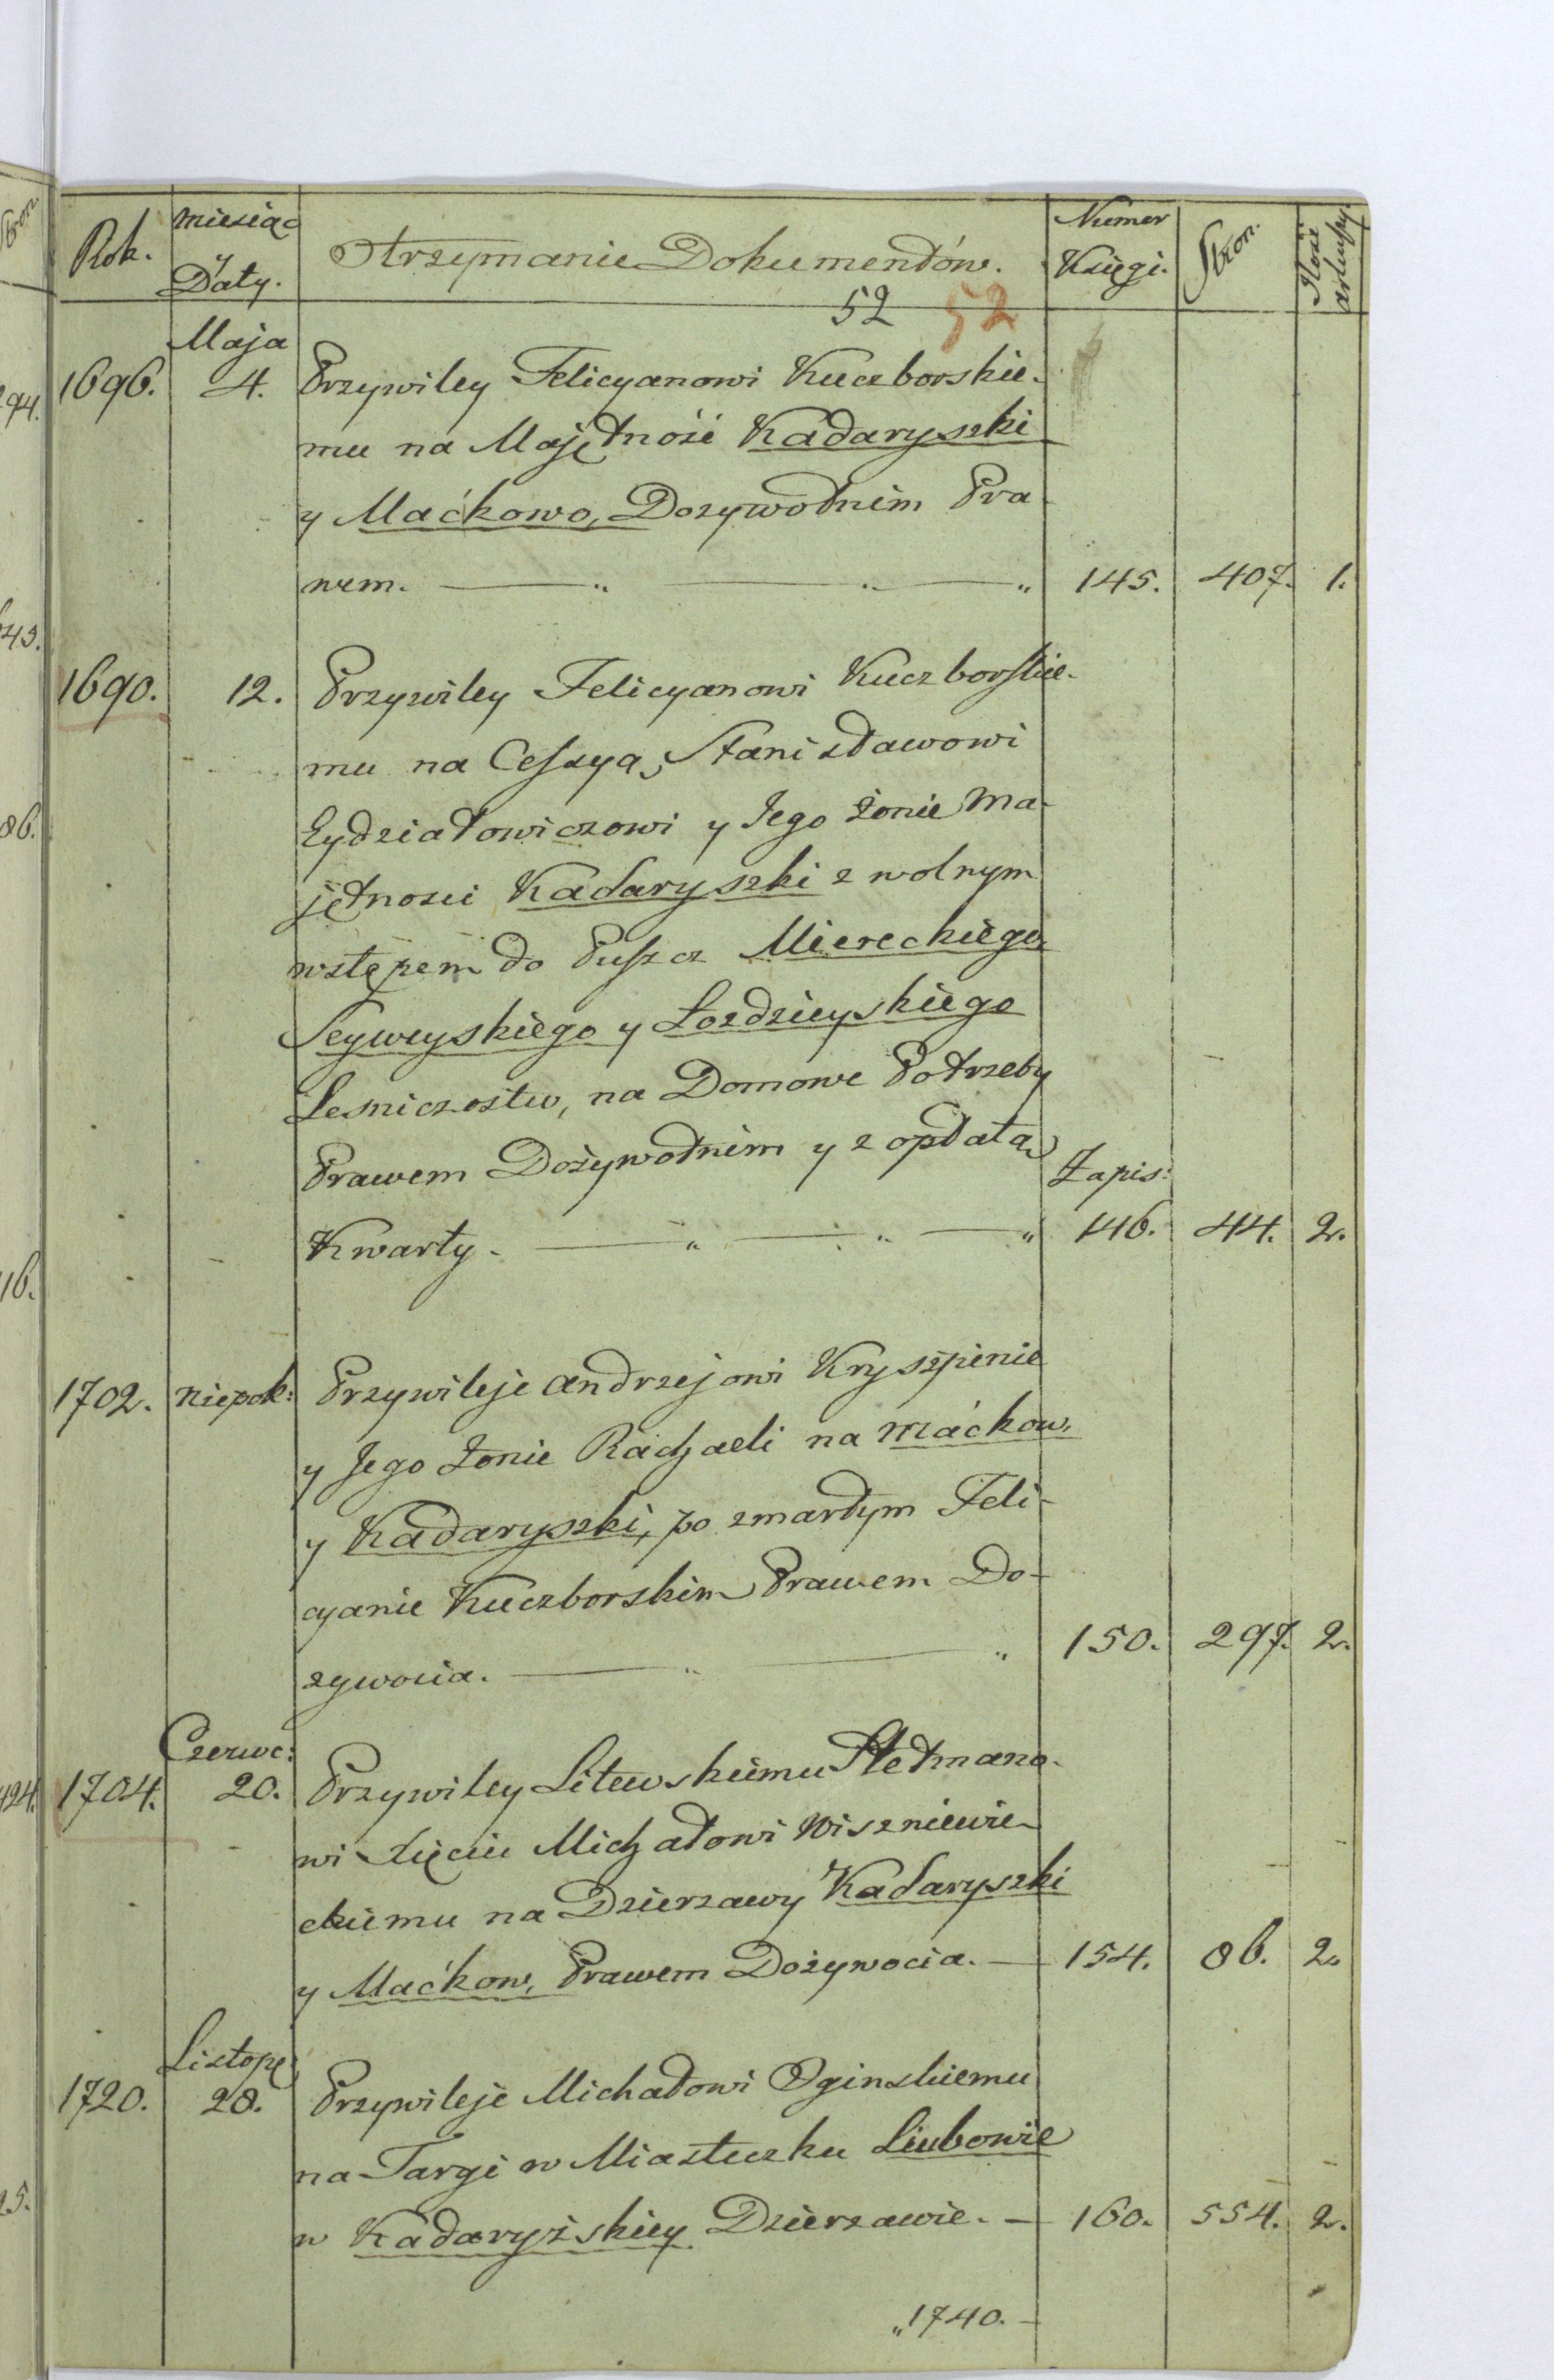 Rok. | miesiąc y Daty. | Otrzymanie Dokumentów. | Numer Księgi. | Stron. | Ilość arkuszy.
52 52
Maja
1696. | 4. | Przywiley Felicyanowi Kuczborskie-
mu na Majętność Kadaryszki
y Maćkowo, Dozywotnim Pra-
wem. | 145. | 407. | 1.
1690. | 12. | Przywiley Felicyanowi Kuczborskie-
mu na Cessyą, Stanisławowi
Eydziatowiczowi y Jego żonie Ma-
jętnosci Kadaryszki z wolnym
wstępem do Puszcz Miereckiego,
Seyweyskiego y Łozdzieyskiego
Lesniczostw, na Domowe Potrzeby
Prawem Dożywotnim y z opłatą | Zapis:
Kwarty. | 146. | 44. | 2.
1702. | niepok: | Przywileje Andrzejowi Kryszpinie
y Jego Żonie Rachaeli na Maćkow,
y Kadaryszki, po zmarłym Feli-
cyanie Kuczborskim Prawem Do-
zywocia. | 150. | 297. | 2.
Czerwc:
1704. | 20. | Przywiley Litewskiemu Hetmano-
wi Xięciu Michałowi Wiszniewie-
ckiemu na Dzierzawy Kadaryszki
y Maćkow, Prawem Dożywocia. | 154. | 86. | 2.
Listop:
1720. | 28. | Przywileje Michałowi Oginskiemu
na Targi w Miasteczku Liubowie
w Kadaryżskiey Dzierzawie. | 160. | 554. | 2.
„1740.